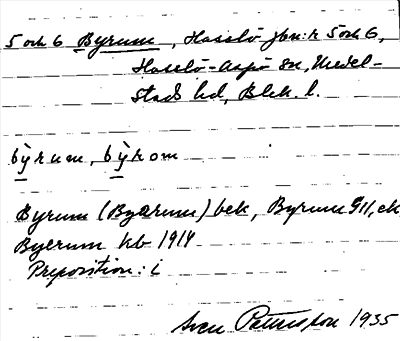 5 och 6 Byrum, Hasslö jbn:r 5 och 6,
Hasslö-Aspö sn, Medel-
stads hd, Blek. l.
by̖rum, by̖rom
Byrum (Byarum) bek, Byrum GII, ek
Byerum kb 1914
Preposition: i
Sven Pettersson 1935